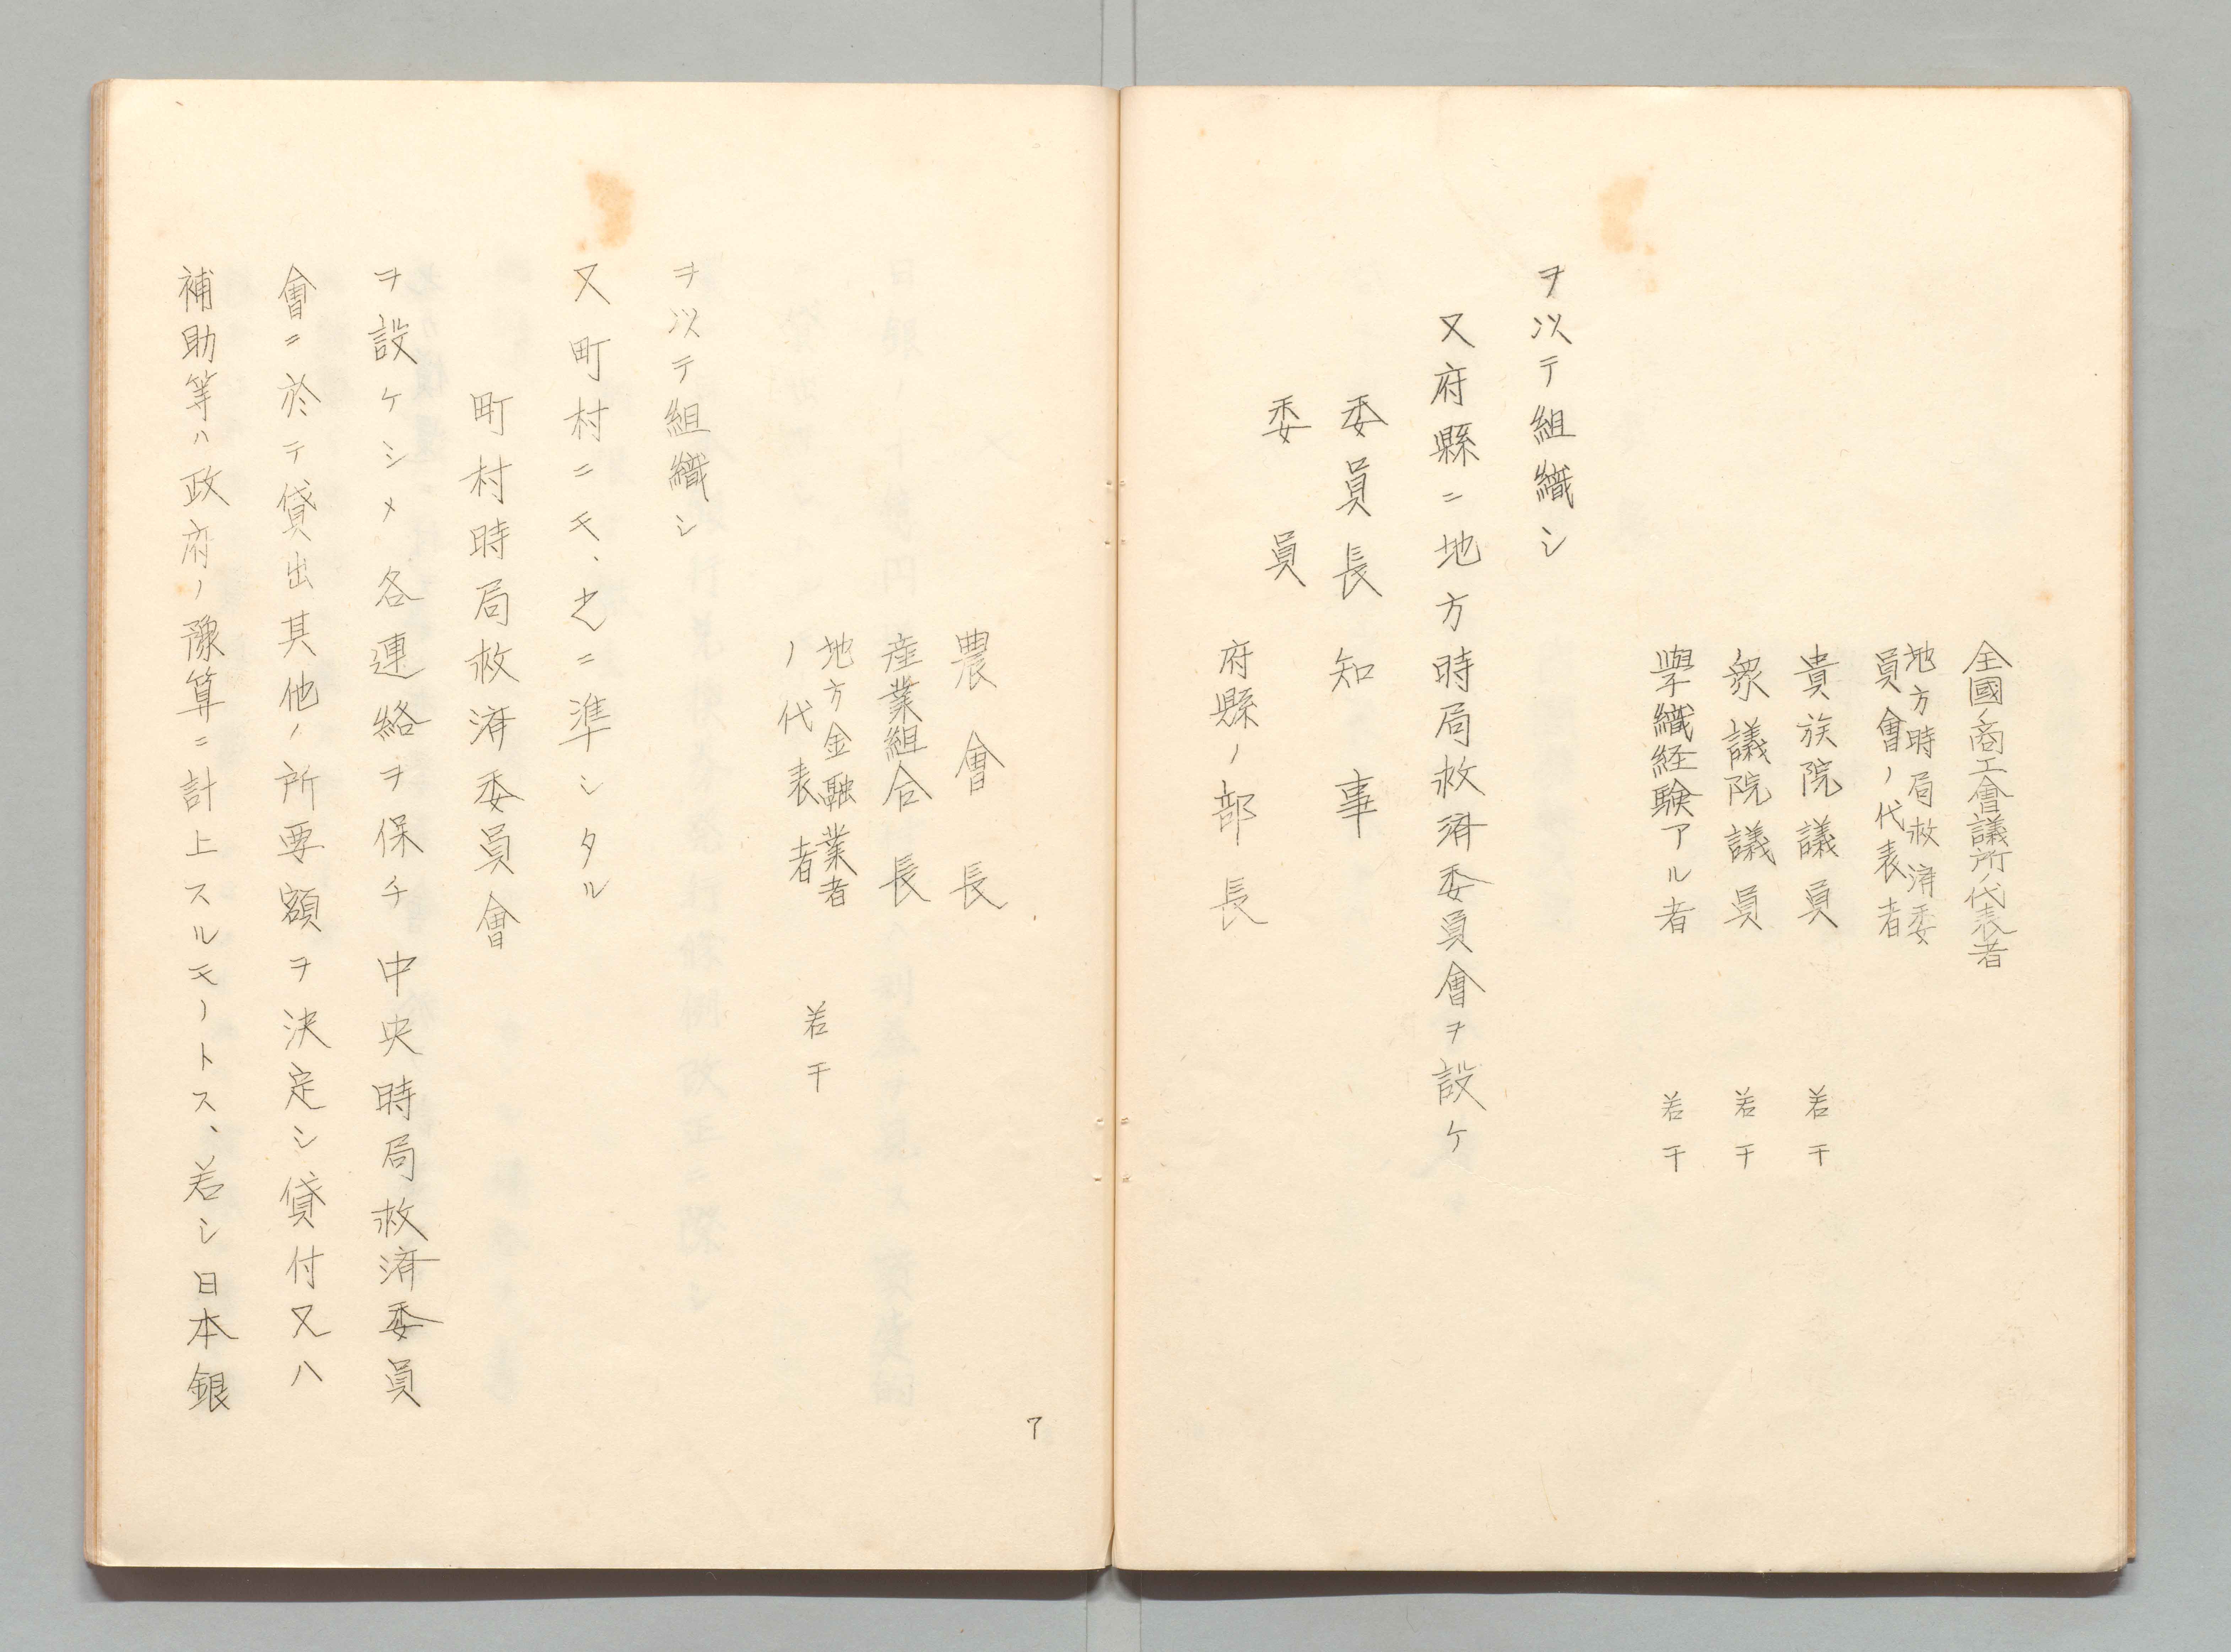 全國ノ商工會議所ノ代表者
地方時局救済委
員會ノ代表者
貴族院議員　若干
衆議院議員　若干
學織経験アル者　若干
ヲ以テ組織シ
又府縣ニ地方時局救済委員會ヲ設ケ
委員長　知事
委員
府縣ノ部長
農會長
産業組合長
地方金融業者
ノ代表者　若干
ヲ以テ組織シ
又町村ニモ、之ニ準シタル
町村時局救済委員會
ヲ設ケシメ各連絡ヲ保チ中央時局救済委員
會ニ於テ貸出其他ノ所要額ヲ決定シ貸付又ハ
補助等ハ政府ノ豫算ニ計上スルモノトス、若シ日本銀
7